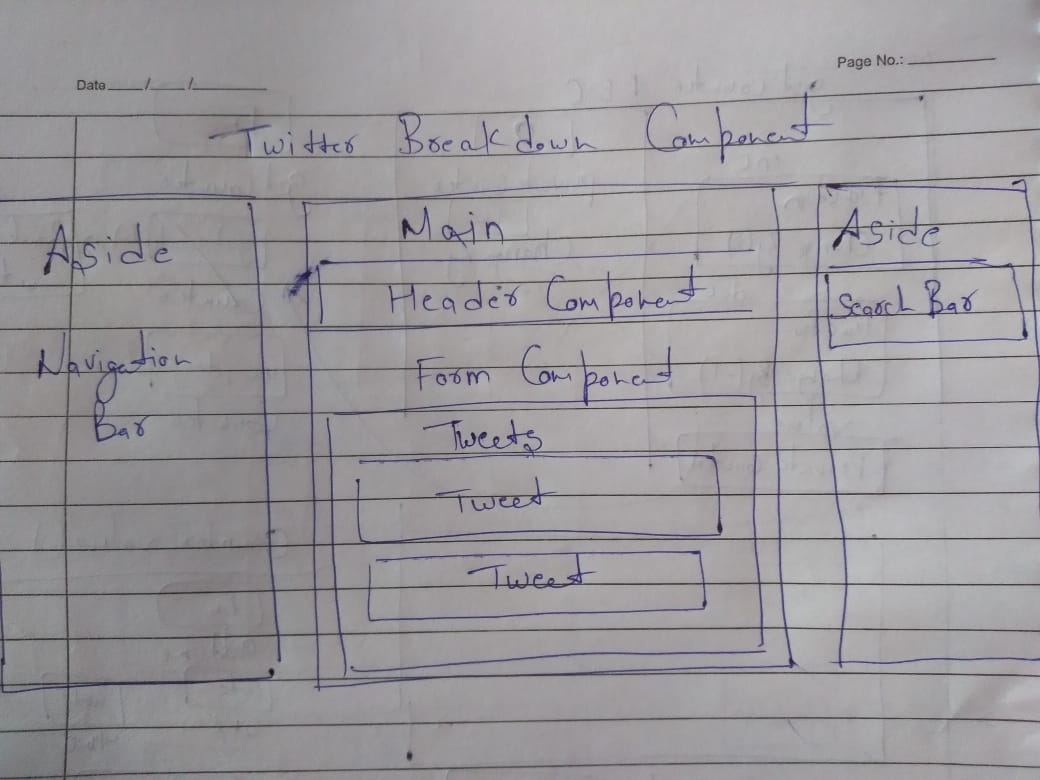 Date___/___/______
Page No.: ________
Twitter Breakdown Component
Aside
Navigation
Bar
Main
Header Component
Form Component
Tweets
Tweet
Tweet
Aside
Search Bar